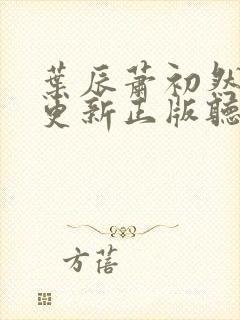 葉辰蕭初然
更新正版聽
方蓓